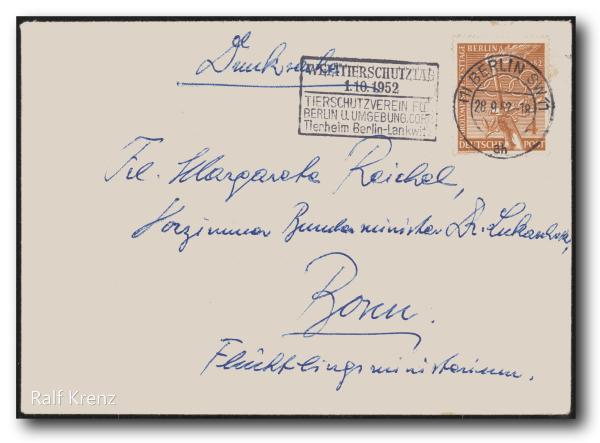 Drucksache
WELTTIERSCHUTZTAG
1.10.1952
TIERSCHUTZVEREIN FÜ
BERLIN U. UMGEBUNG CORP.
Tierheim Berlin-Lankwitz
BERLIN 1952
4
DEUTSCHE POST
(1) BERLIN SW 11
28.9.52-18
dh
Frl. Margarete Reichel,
Vorzimmer Bundesminister Dr. Lukaschek,
Bonn.
Flüchtlingsministerium.
Ralf Krenz